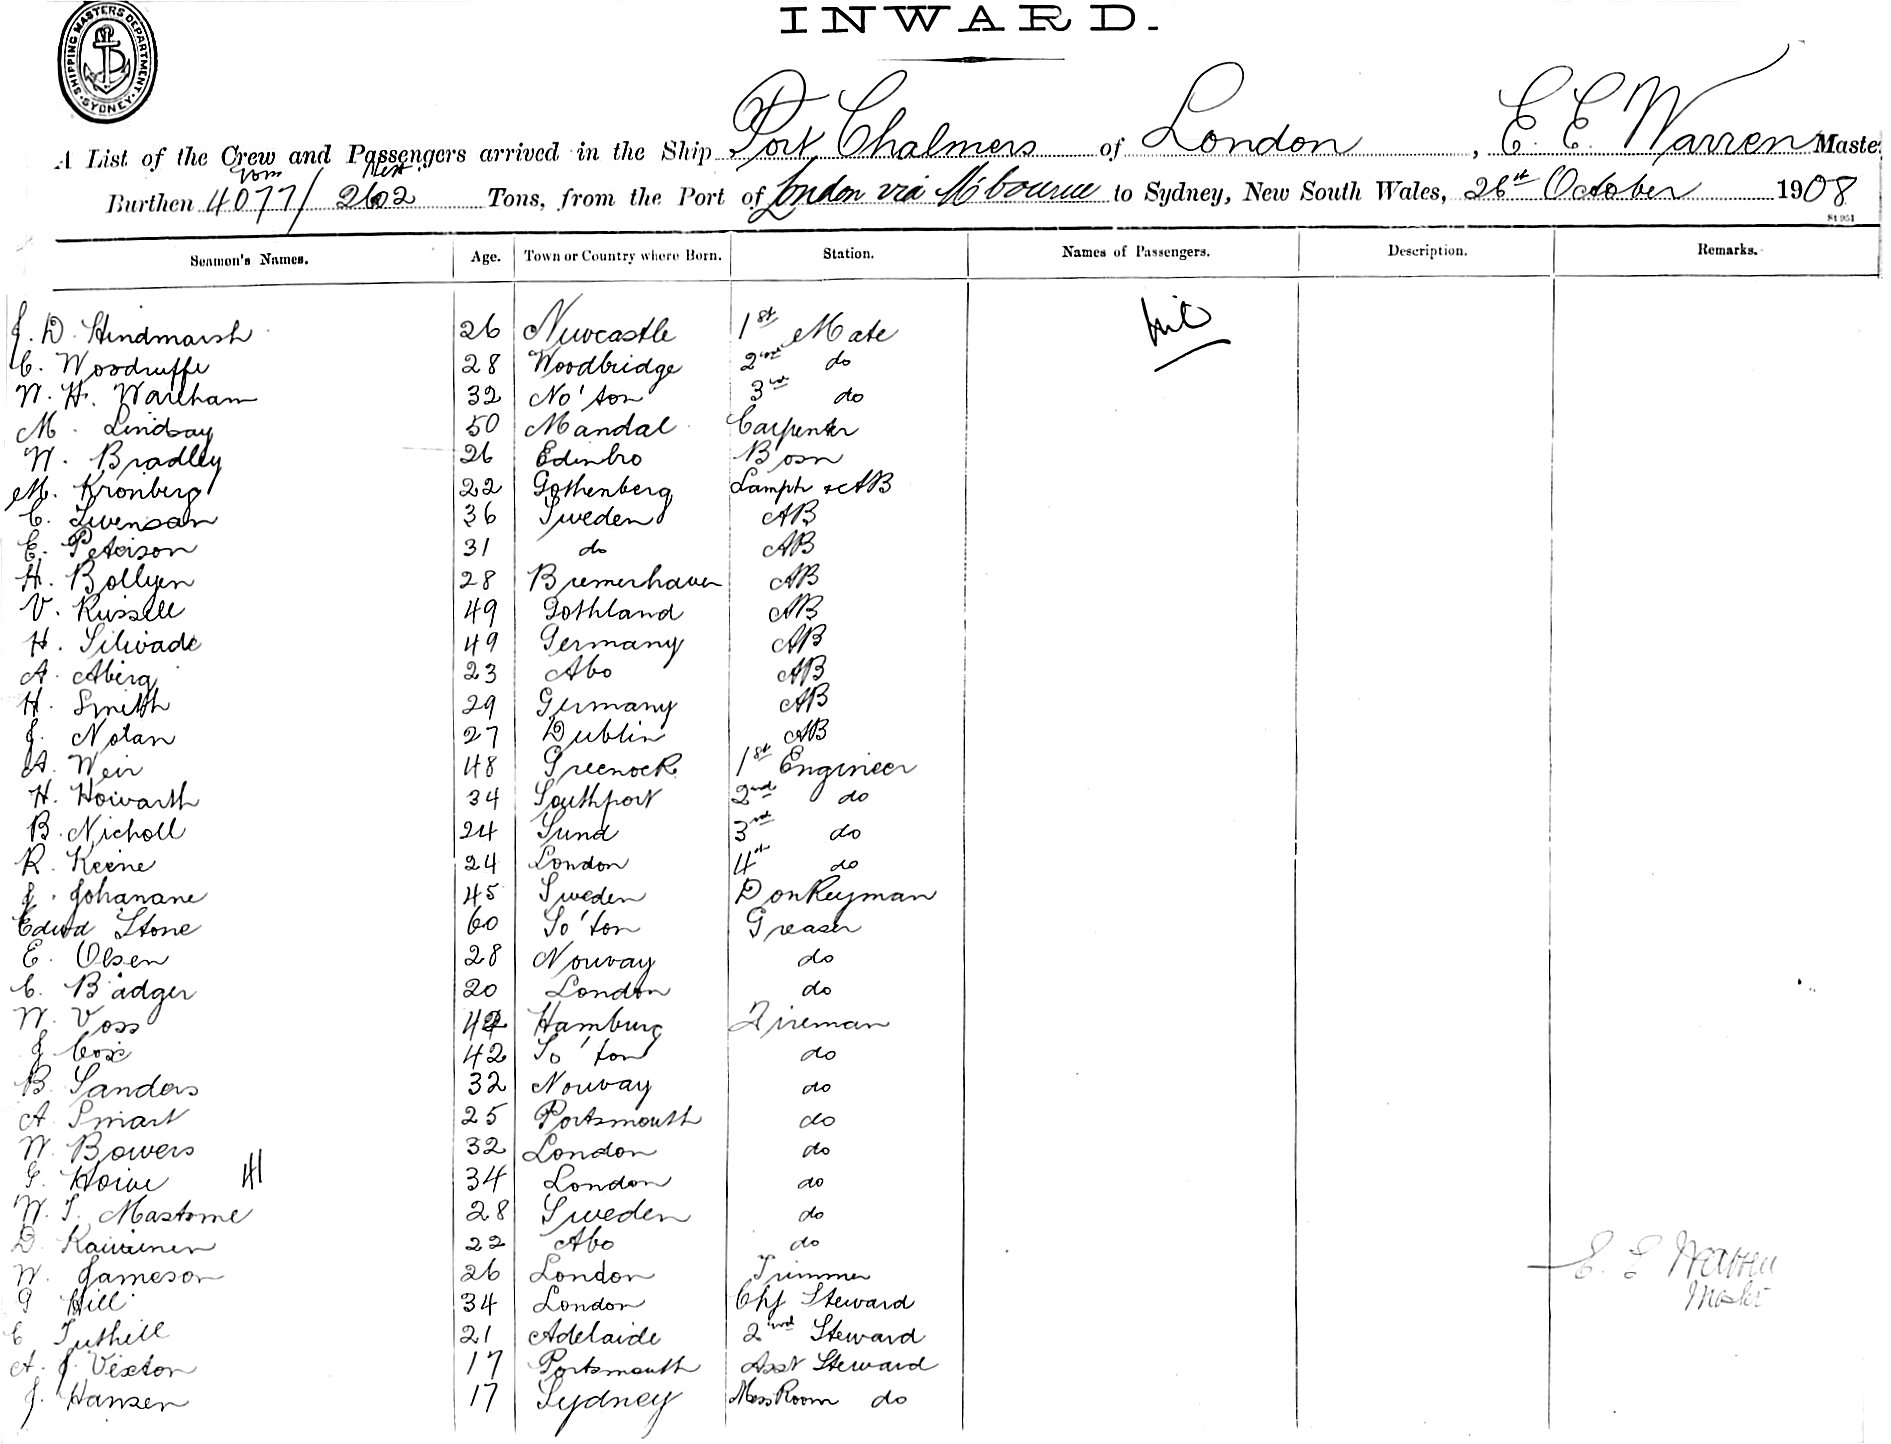 INWARD.
SHIPPING MASTERS DEPARTMENT. SYDNEY.
A List of the Crew and Passengers arrived in the Ship Port Chalmers of London, E. E. Warren Maste
Burthen Tom 4077 / Nett 2602 Tons, from the Port of London via M'bourne to Sydney, New South Wales, 26th October 1908
Seamen's Names. Age. Town or Country where Born. Station. Names of Passengers. Description. Remarks.
J. D. Hindmarsh 26 Newcastle 1st Mate nil
C. Woodruffe 28 Woodbridge 2nd do
W. H. Wareham 32 No'ton 3rd do
M. Lindsay 50 Mandal Carpenter
W. Bradley 26 Edinbro Bosn
M. Kronberg 22 Gothenberg Lamps & AB
C. Swensan 36 Sweden AB
E. Peterson 31 do AB
H. Bollyen 28 Bremerhaven AB
V. Russell 49 Gothland AB
H. Silwade 49 Germany AB
A. Aberg 23 Abo AB
H. Smith 29 Germany AB
J. Nolan 27 Dublin AB
A. Weir 48 Greenock 1st Engineer
H. Howarth 34 Southport 2nd do
B. Nicholl 24 Sund 3rd do
R. Keene 24 London 4th do
J. Johanane 45 Sweden Donkeyman
Edwd Stone 60 So'ton Greaser
E. Olsen 28 Norway do
C. Badger 20 London do
W. Voss 42 Hamburg Fireman
J Cox 42 So'ton do
B. Sanders 32 Norway do
A. Smart 25 Portsmouth do
W. Bowers 32 London do
G. Howe 34 London do
W. T. Mastome 28 Sweden do
D. 22 Abo do
W. Jameson 26 London Trimmer
G Hill 34 London Chf Steward
C Tuthill 21 Adelaide 2nd Steward
A. J. Vexton 17 Portsmouth Asst Steward
J. Hansen 17 Sydney Mess Room do
E. E Warren
Master